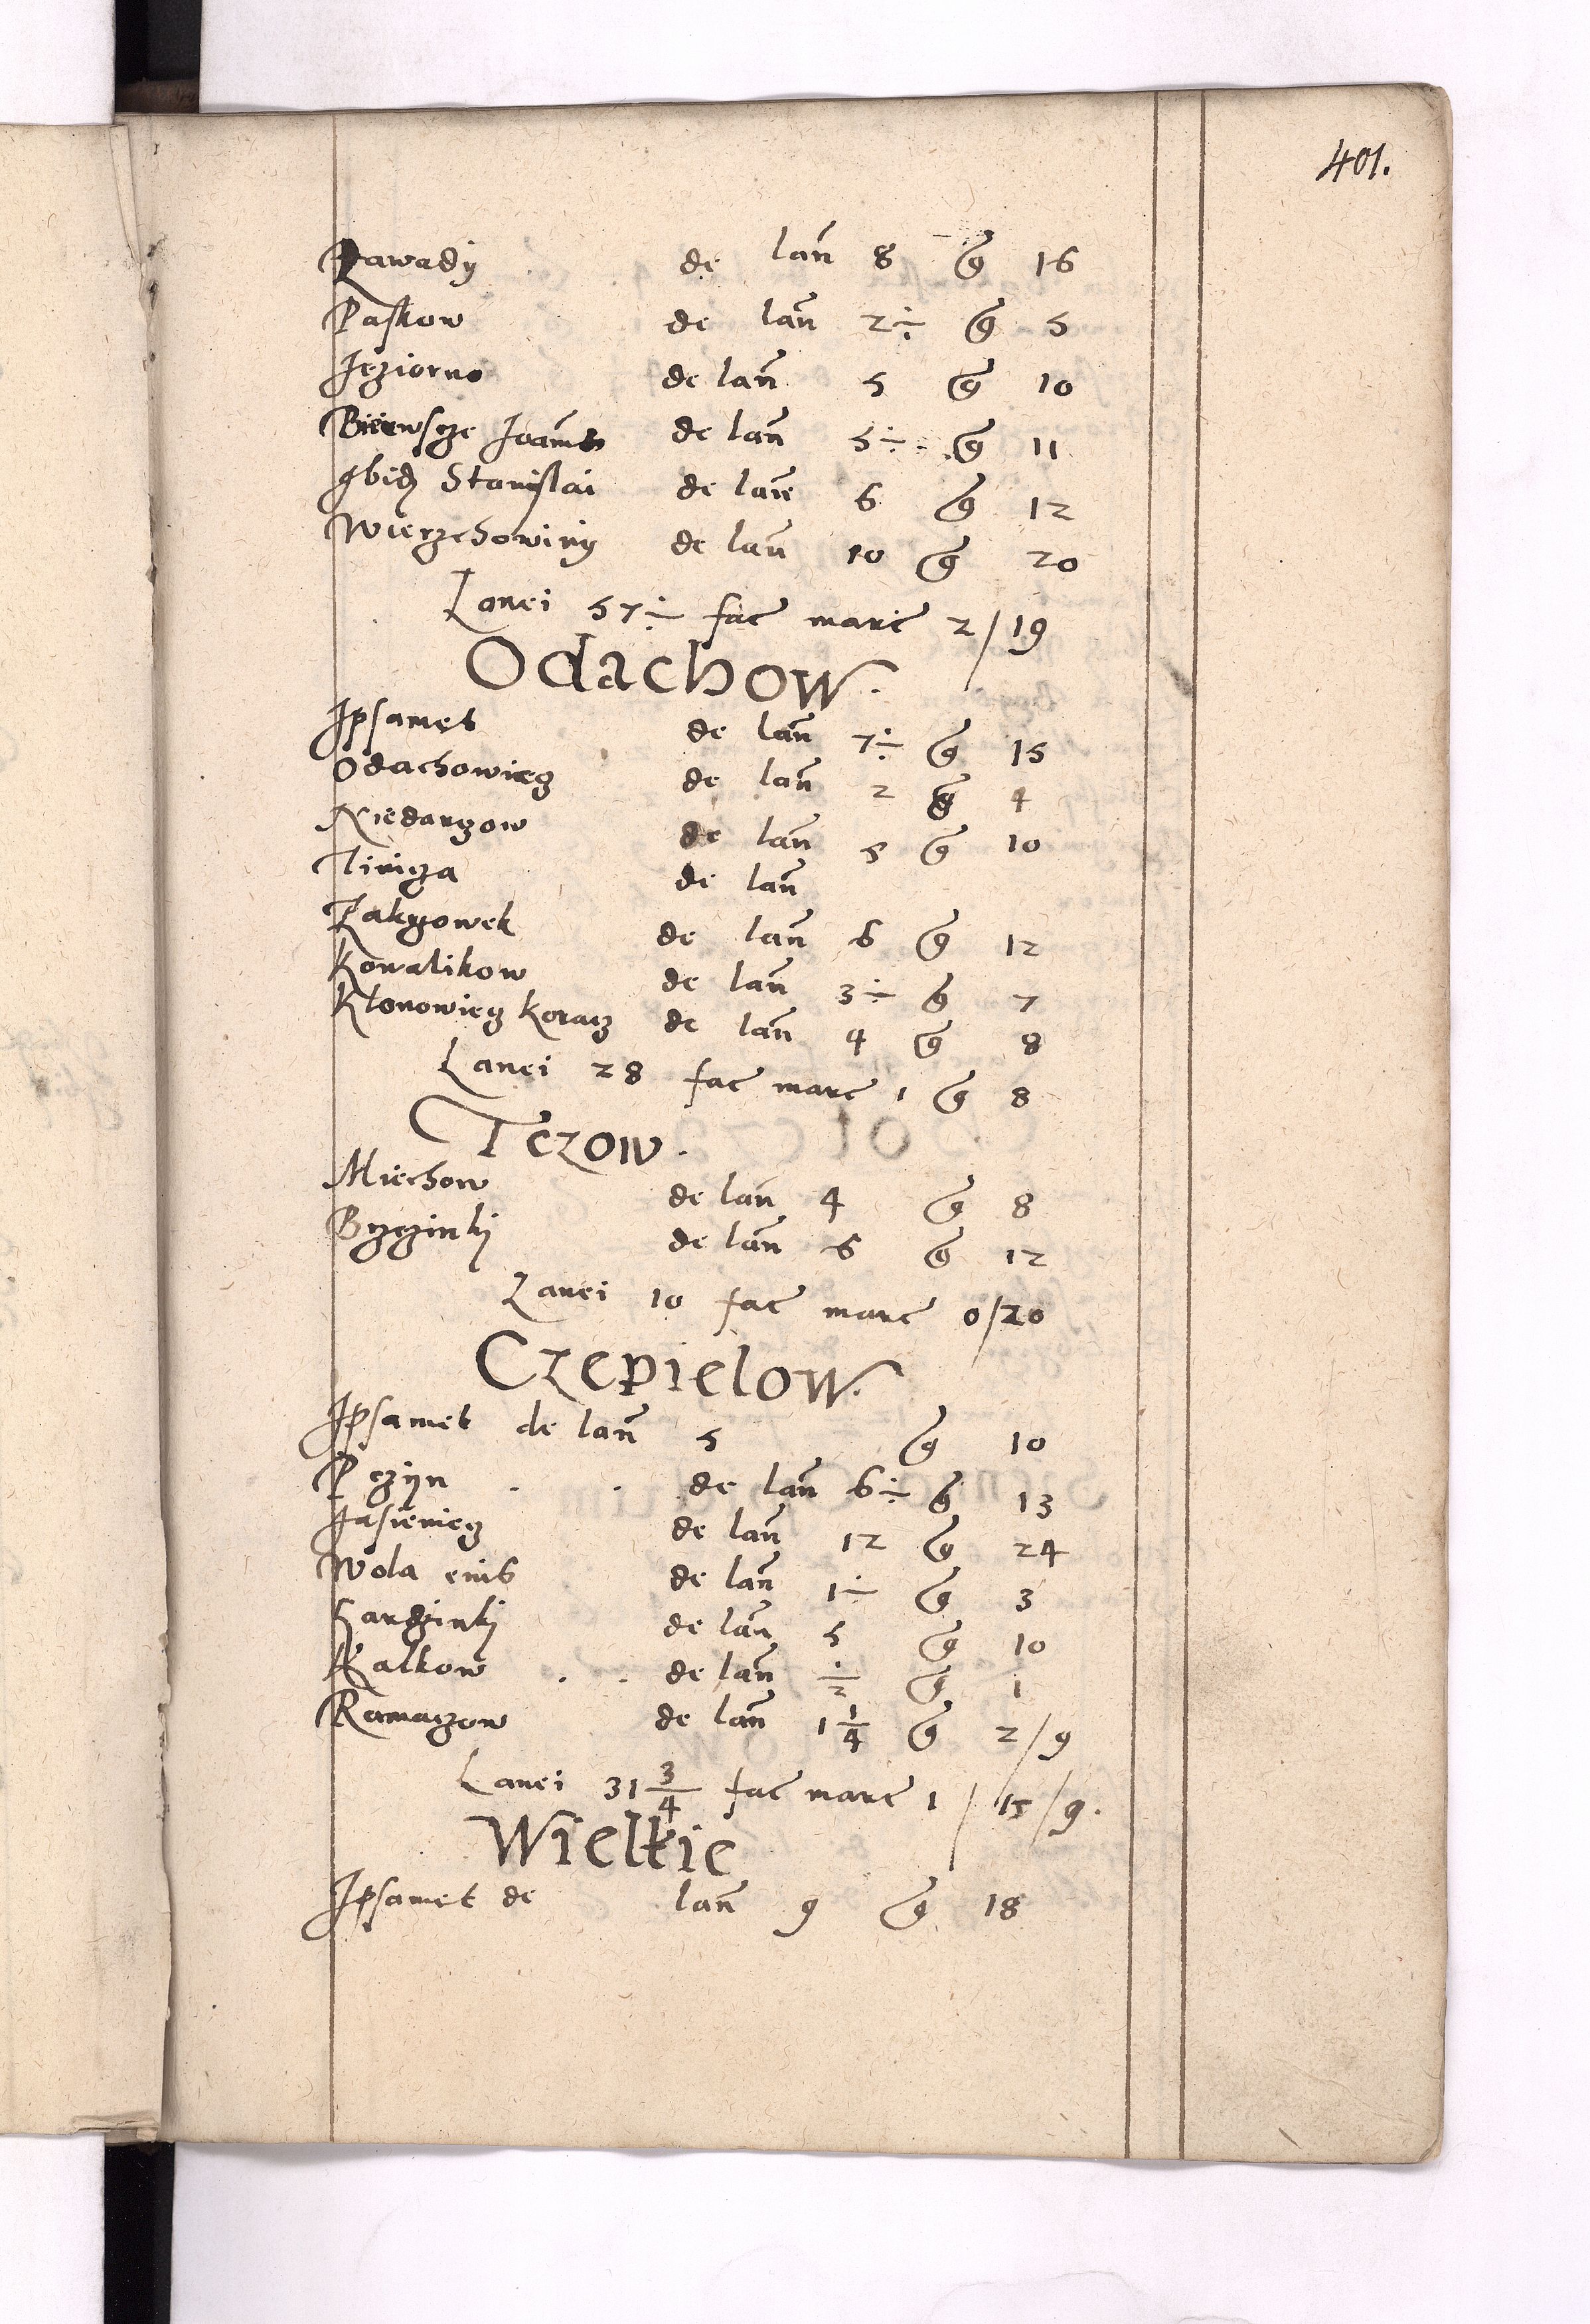 401.
Zawady de lan 8 g 16
Paskow de lan 2÷ g 5
Jeziorno de lan 5 g 10
Bierwsze Joannes de lan 5÷ g 11
Ibid Stanislai de lan 6 g 12
Wierzchowiny de lan 10 g 20
Lanei 57÷ fac marc 2/19
Odachow.
Ipsamet de lan 7÷ g 15
Odachowiecz de lan 2 g 4
Niedarzow de lan 5 g 10
Tinicza de lan
Zakrzowek de lan 6 g 12
Kowalikow de lan 3÷ g 7
Klonowiecz Koracz de lan 4 g 8
Lanei 28 fac marc 1 g 8
Tczow.
Miechow de lan 4 g 8
Brzezinki de lan 6 g 12
Lanei 10 fac marc 0/20
Czepielow.
Ipsamet de lan 5 g 10
Pczyn de lan 6÷ g 13
Jasieniecz de lan 12 g 24
Wola eius de lan 1÷ g 3
Karczinki de lan 5 g 10
Kalkow de lan ½ g 1
Ramaczow de lan 1 1/4 g 2/9
Lanei 31 3/4 fac marc 1/15/9.
Wielkie
Ipsamet de lan 9 g 18